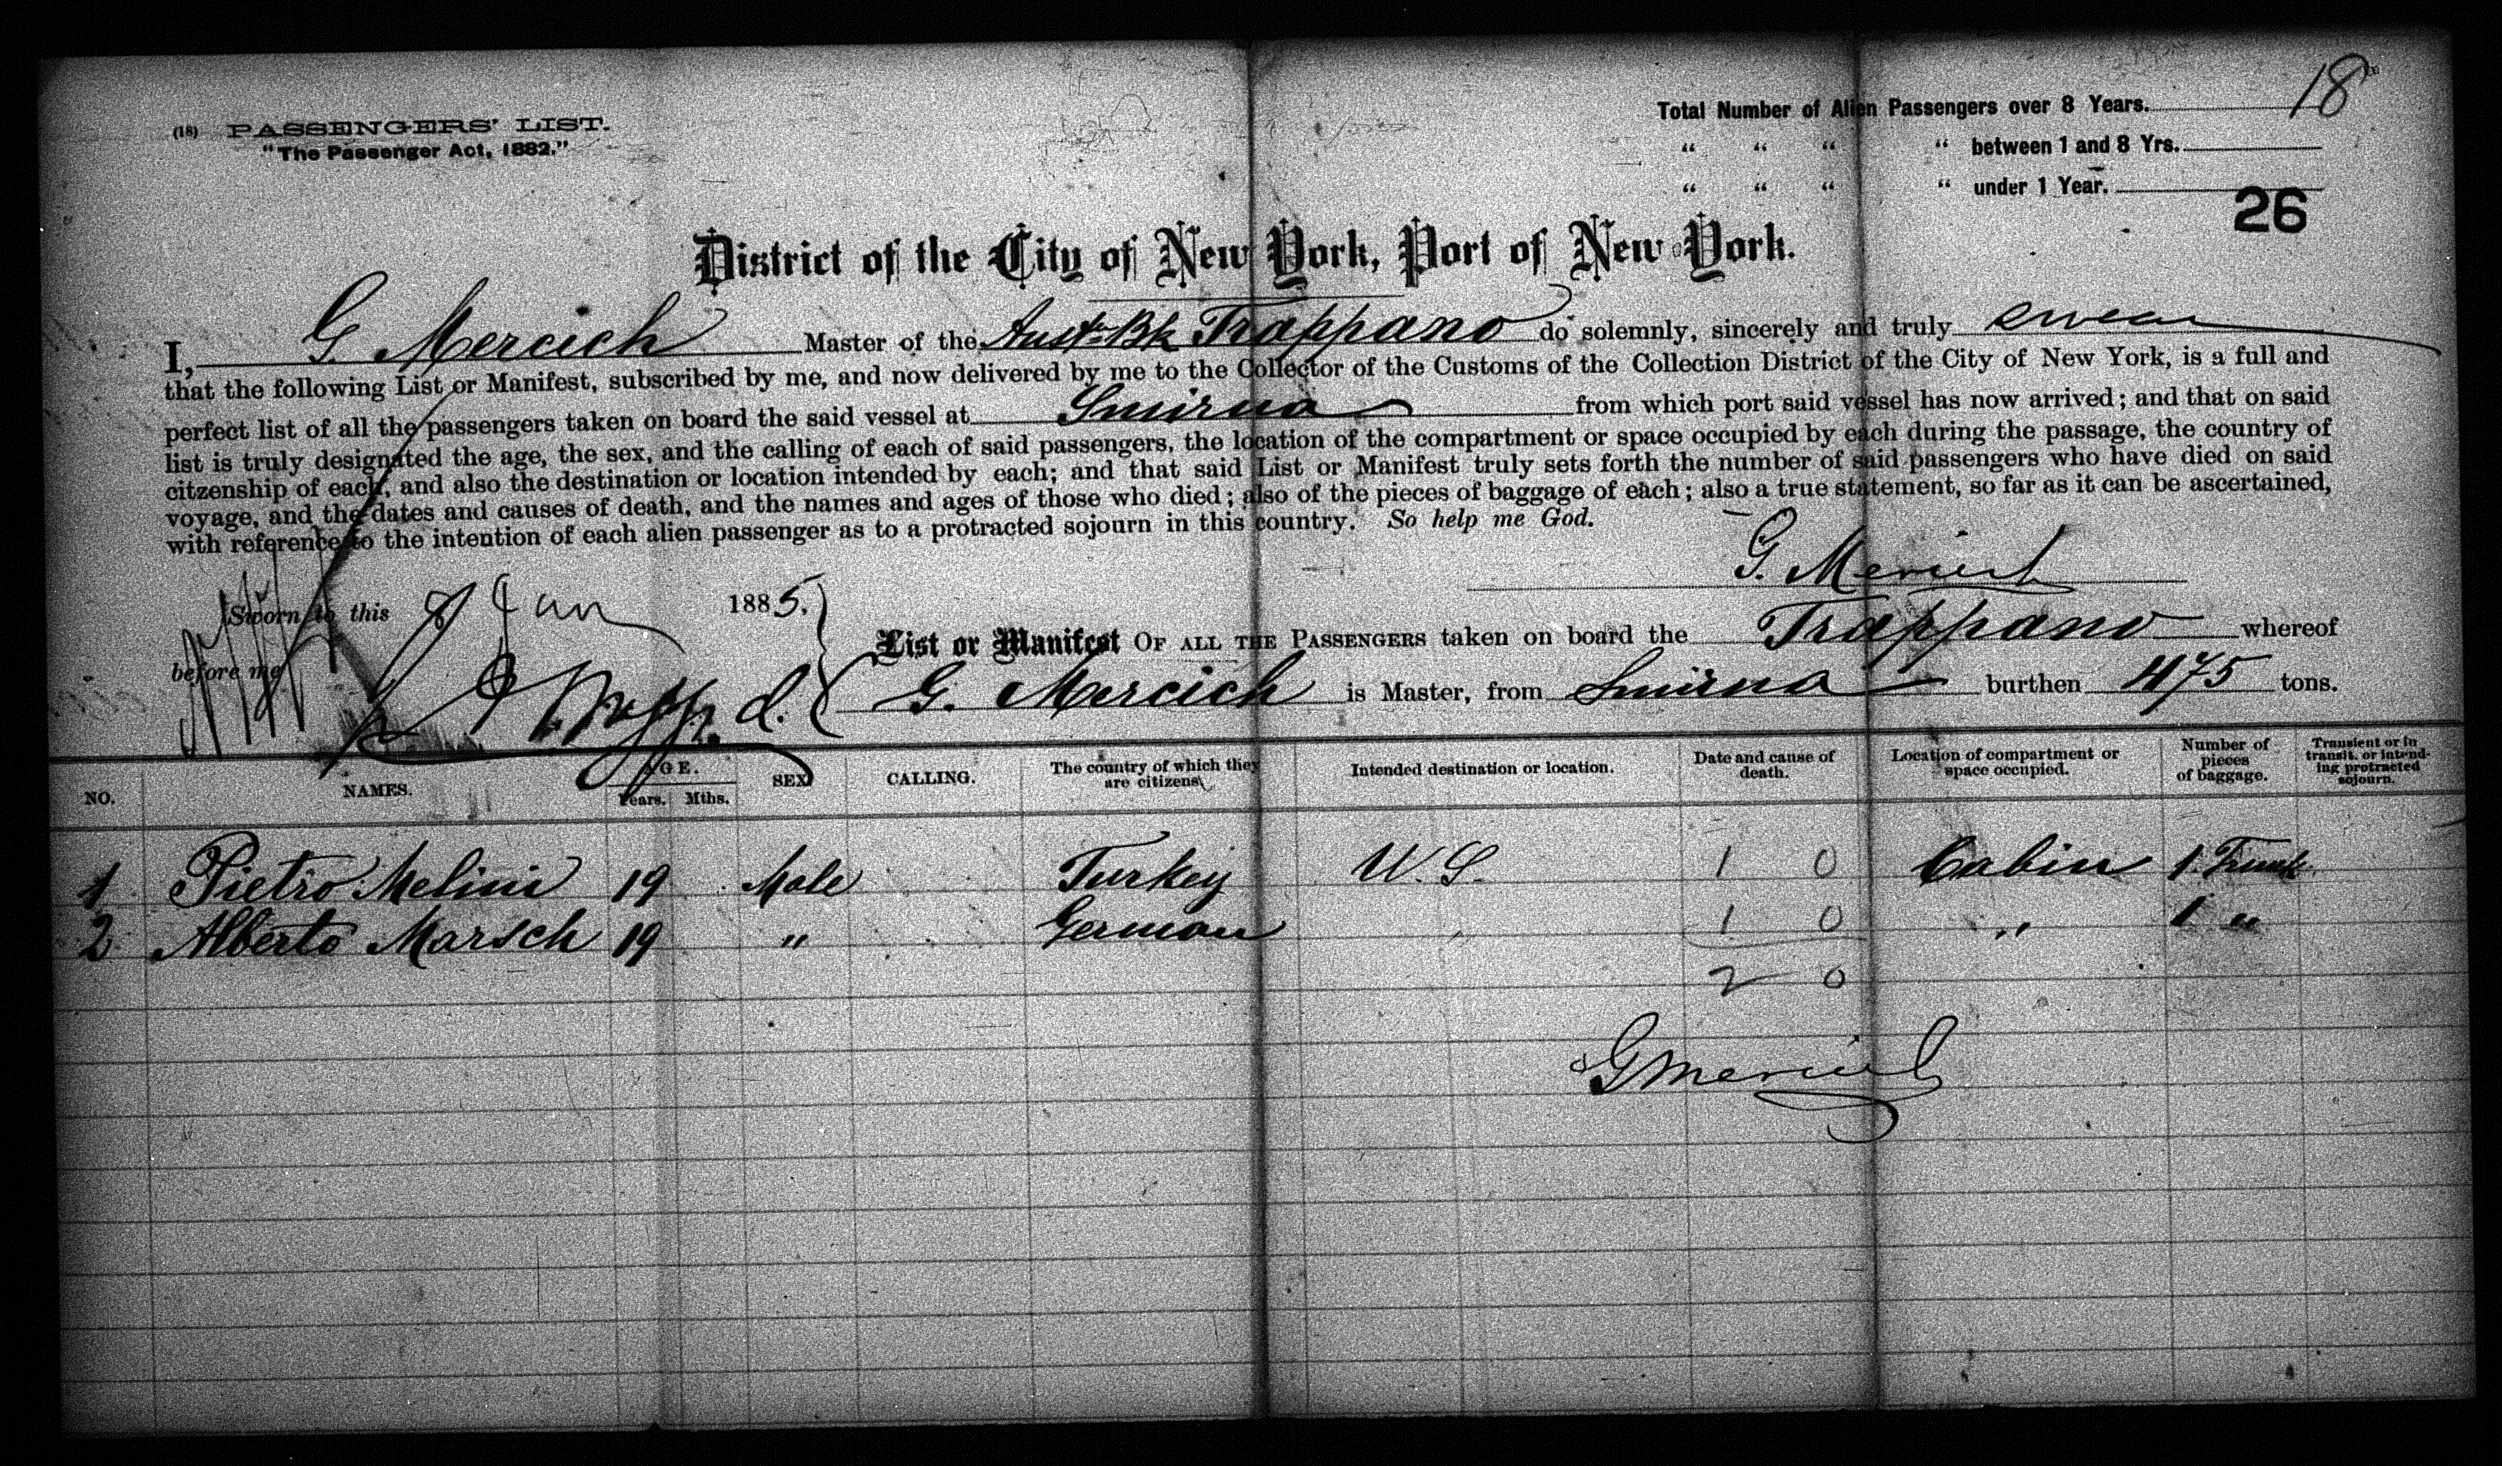 18
Total Number of Alien Passengers over 8 Years.
(18) PASSENGERS' LIST.
"The Passenger Act, 1882."
“ “ “ “ between 1 and 8 Yrs.
“ “ “ “ under 1 Year.
26
District of the City of New York, Port of New York.
I, G. Mercich Master of the Austn Bk Trappano do solemnly, sincerely and truly swear
that the following List or Manifest, subscribed by me, and now delivered by me to the Collector of the Customs of the Collection District of the City of New York, is a full and
perfect list of all the passengers taken on board the said vessel at Smirna from which port said vessel has now arrived; and that on said
list is truly designated the age, the sex, and the calling of each of said passengers, the location of the compartment or space occupied by each during the passage, the country of
citzenship of each, and also the destination or location intended by each; and that said List or Manifest truly sets forth the number of said passengers who have died on said
voyage, and the dates and causes of death, and the names and ages of those who died; also of the pieces of baggage of each; also a true statement, so far as it can be ascertained,
with reference to the intention of each alien passenger as to a protracted sojourn in this country. So help me God.
G. Mercich
Sworn to this 8 Jan 1885.
before me
List or Manifest OF ALL THE PASSENGERS taken on board the Trappano whereof
G. Mercich is Master, from Smirna burthen 475 tons.
NO. NAMES. AGE. Years. Mths. SEX CALLING. The country of which they are citizens Intended destination or location. Date and cause of death. Location of compartment or space occupied. Number of pieces of baggage. Transient or in transit, or intending protracted sojourn.
1 Pietro Melini 19 Male Turkey U.S. 1 0 Cabin 1 Trunk
2 Alberto Marsch 19 " German 1 0 " 1 "
2 0
G Mercich